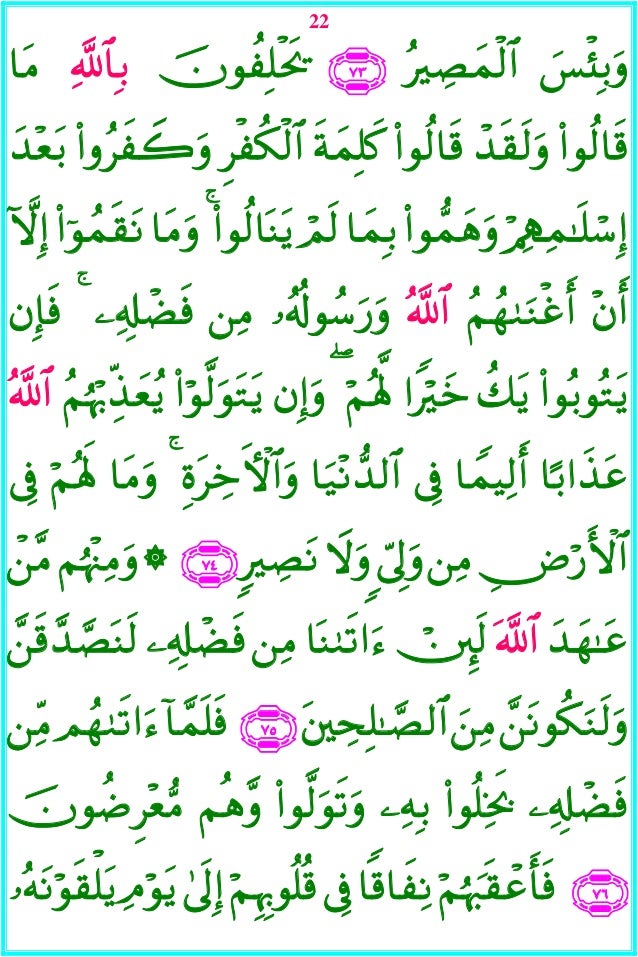 22
وَبِئۡسَ ٱلۡمَصِيرُ ٧٣ يَحۡلِفُونَ بِٱللَّهِ مَا
قَالُواْ وَلَقَدۡ قَالُواْ كَلِمَةَ ٱلۡكُفۡرِ وَكَفَرُواْ بَعۡدَ
إِسۡلَٰمِهِمۡ وَهَمُّواْ بِمَا لَمۡ يَنَالُواْۚ وَمَا نَقَمُوٓاْ إِلَّآ
أَنۡ أَغۡنَىٰهُمُ ٱللَّهُ وَرَسُولُهُۥ مِن فَضۡلِهِۦۚ فَإِن
يَتُوبُواْ يَكُ خَيۡرٗا لَّهُمۡۖ وَإِن يَتَوَلَّوۡاْ يُعَذِّبۡهُمُ ٱللَّهُ
عَذَابًا أَلِيمٗا فِي ٱلدُّنۡيَا وَٱلۡأٓخِرَةِۚ وَمَا لَهُمۡ فِي
ٱلۡأَرۡضِ مِن وَلِيّٖ وَلَا نَصِيرٖ ٧٤ ۞ وَمِنۡهُم مَّنۡ
عَٰهَدَ ٱللَّهَ لَئِنۡ ءَاتَىٰنَا مِن فَضۡلِهِۦ لَنَصَّدَّقَنَّ
وَلَنَكُونَنَّ مِنَ ٱلصَّٰلِحِينَ ٧٥ فَلَمَّآ ءَاتَىٰهُم مِّن
فَضۡلِهِۦ بَخِلُواْ بِهِۦ وَتَوَلَّواْ وَّهُم مُّعۡرِضُونَ
٧٦ فَأَعۡقَبَهُمۡ نِفَاقٗا فِي قُلُوبِهِمۡ إِلَىٰ يَوۡمِ يَلۡقَوۡنَهُۥ